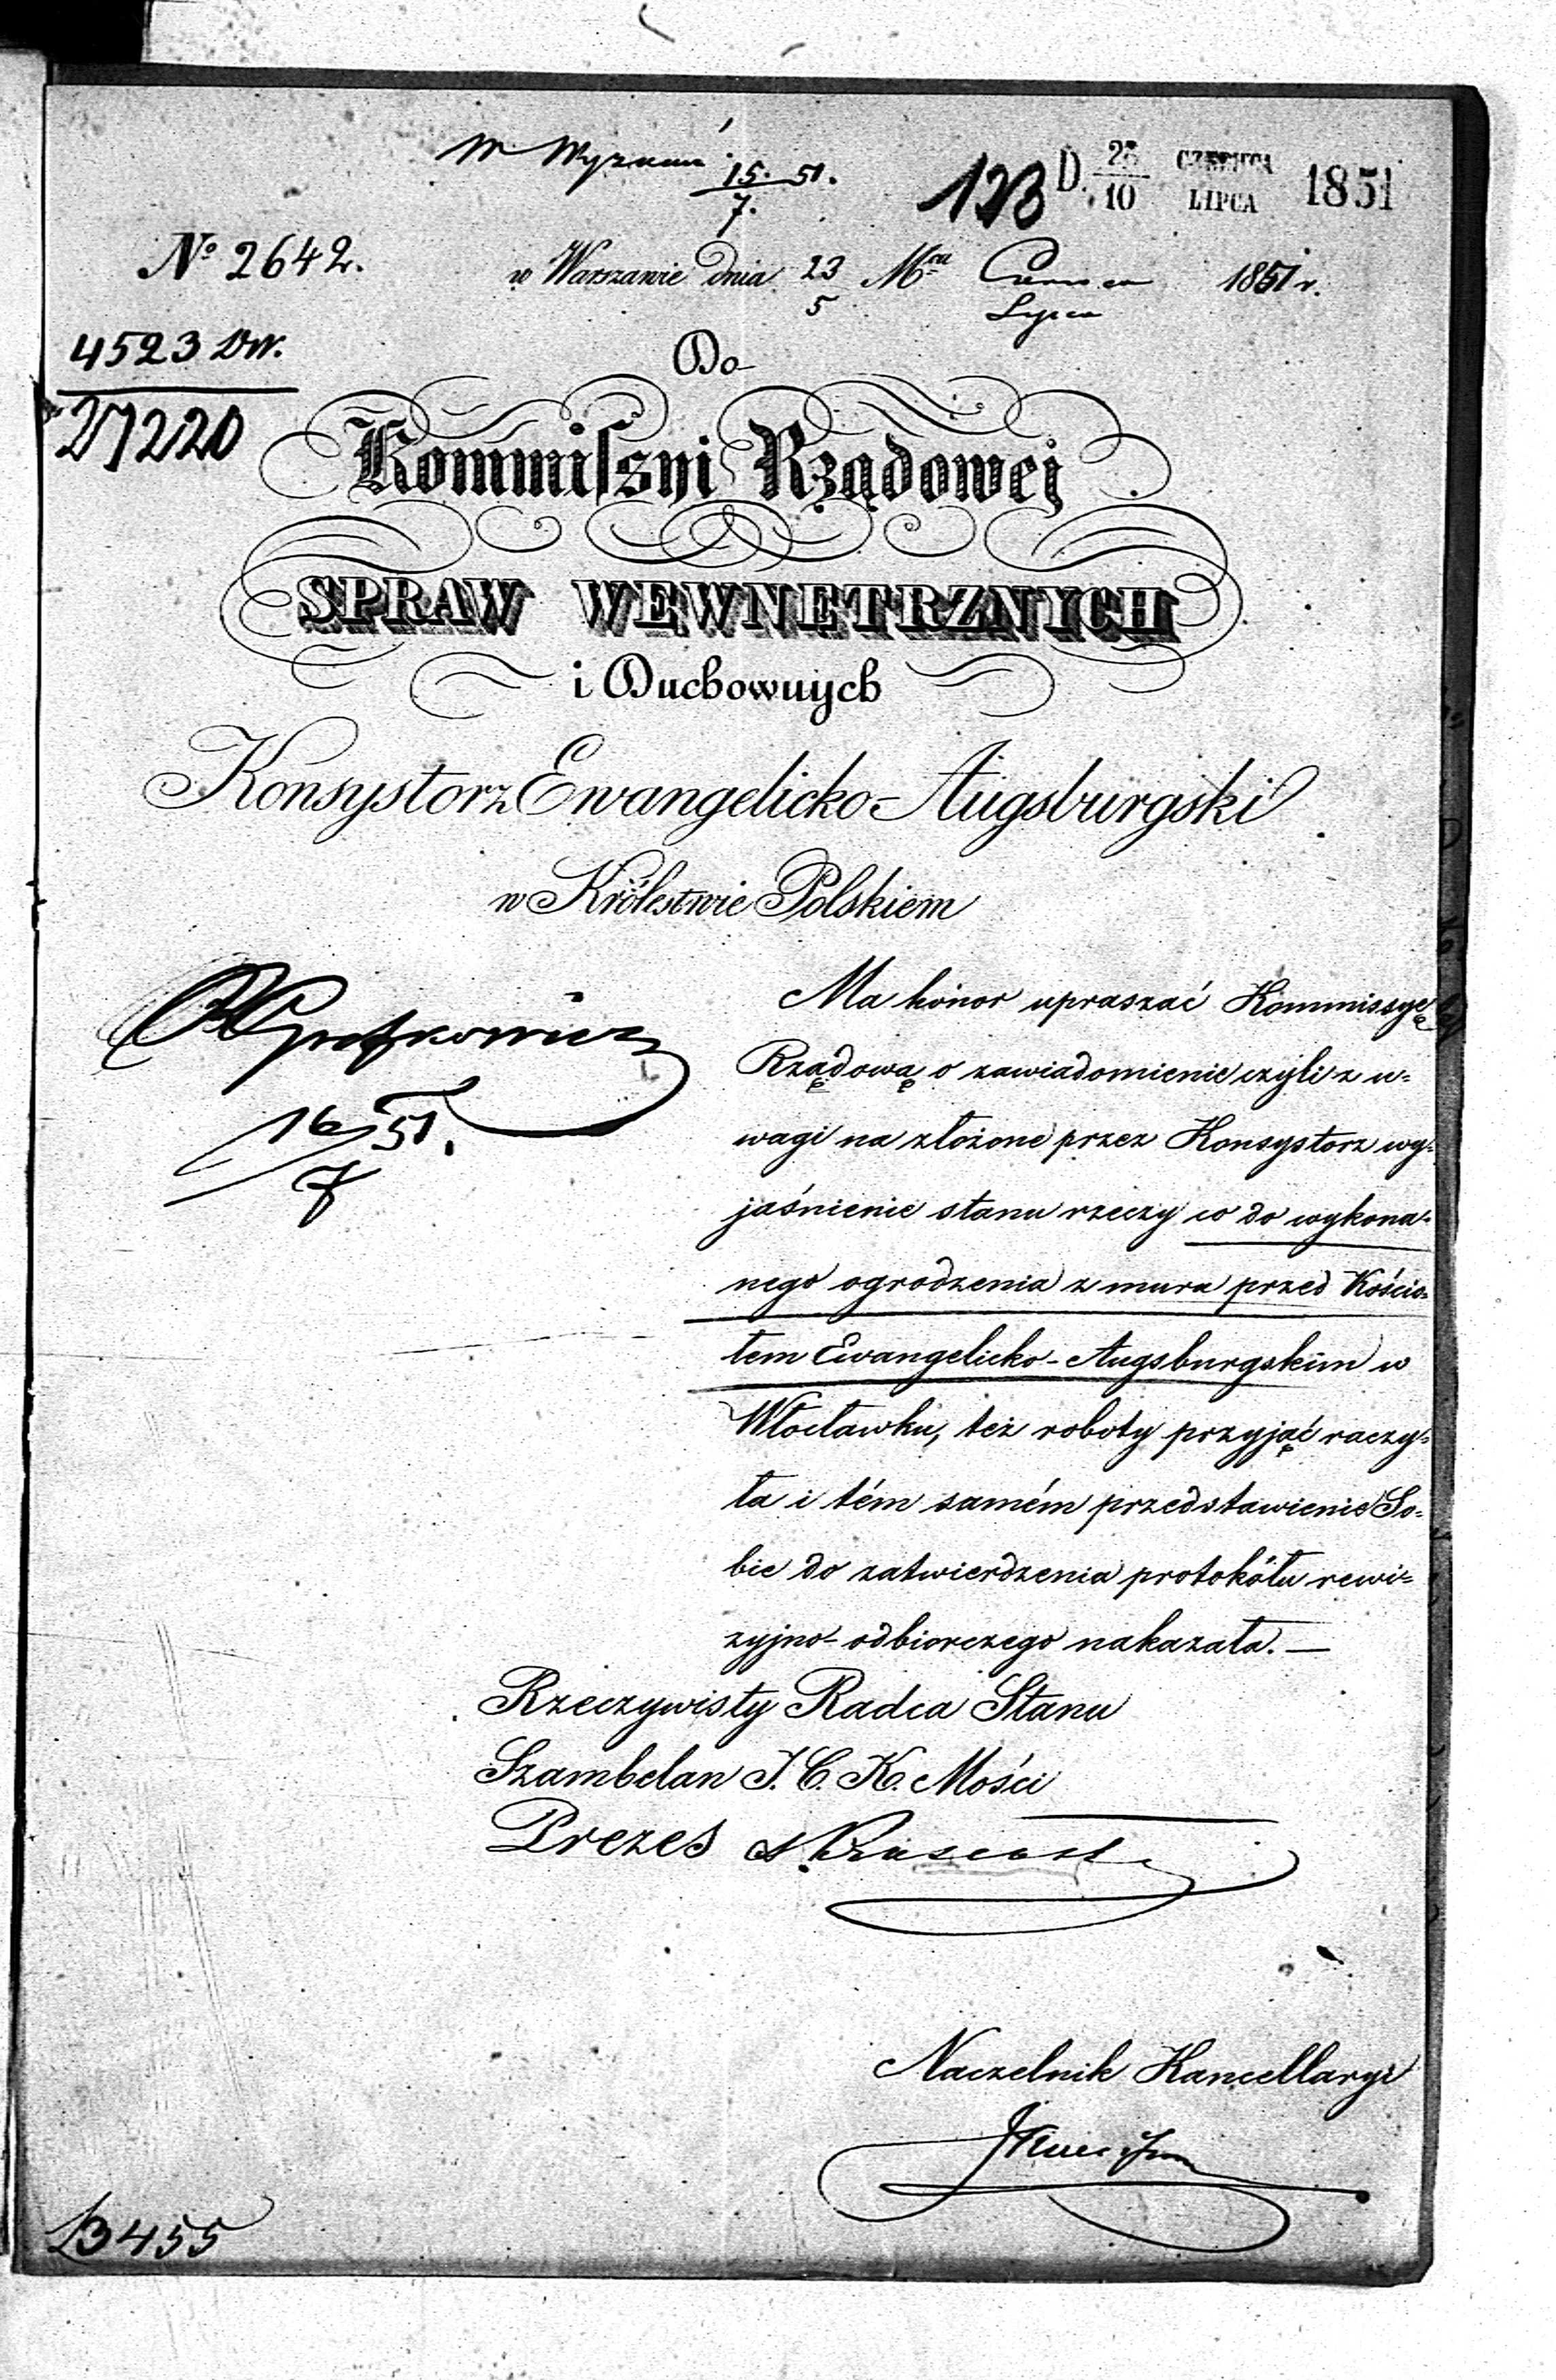 W. Wyznań 15/7. 51.
D. 28/10 CZERWCA LIPCA 1851
No 2642. w Warszawie dnia 23/5 Mca Czerwca Lipca 1851 r.
4523 Dw.
27220
Do
Kommissyi Rządowej
SPRAW WEWNĘTRZNYCH
i Duchownych
Konsystorz Ewangelicko-Augsburgski
w Królestwie Polskiem
Ma honor upraszać Kommissyę
Rządową o zawiadomienie czyli z u=
wagi na złożone przez Konsystorz wy=
jaśnienie stanu rzeczy co do wykona=
nego ogrodzenia z muru przed Kościo=
łem Ewangelicko-Augsburgskim w
Włocławku, też roboty przyjąć raczy=
ła i tém samém przedstawienie So=
bie do zatwierdzenia protokółu rewi=
zyjno-odbiorczego nakazała. —
16/7 51.
Rzeczywisty Radca Stanu
Szambelan J. C. K. Mości
Prezes
Naczelnik Kancellaryi
13455